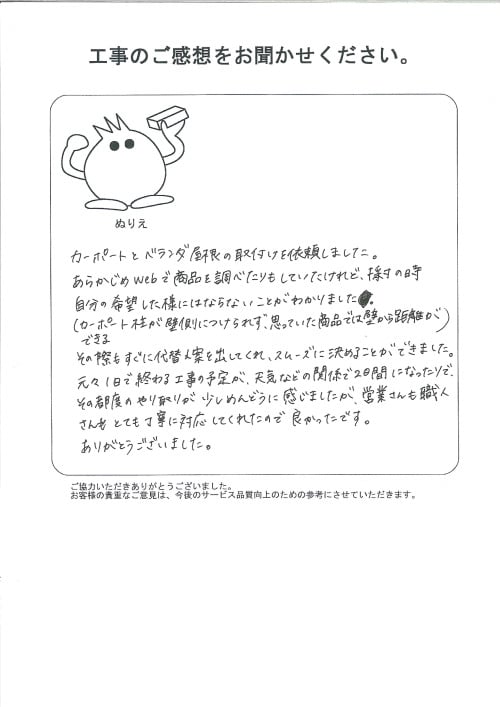 工事のご感想をお聞かせください。
ぬりえ
カーポートとベランダ屋根の取付けを依頼しました。
あらかじめwebで商品を調べたりもしていたけれど、採寸の時
自分の希望した様にはならないことがわかりました。
(カーポート柱が壁側につけられず、思っていた商品では壁から距離が)
できる
その際もすぐに代替え案を出してくれ、スムーズに決めることができました。
元々1日で終わる工事の予定が、天気などの関係で2日間になったりで、
その都度のやり取りが少しめんどうに感じましたが、営業さんも職人
さんもとても丁寧に対応してくれたので良かったです。
ありがとうございました。
ご協力いただきありがとうございました。
お客様の貴重なご意見は、今後のサービス品質向上のための参考にさせていただきます。